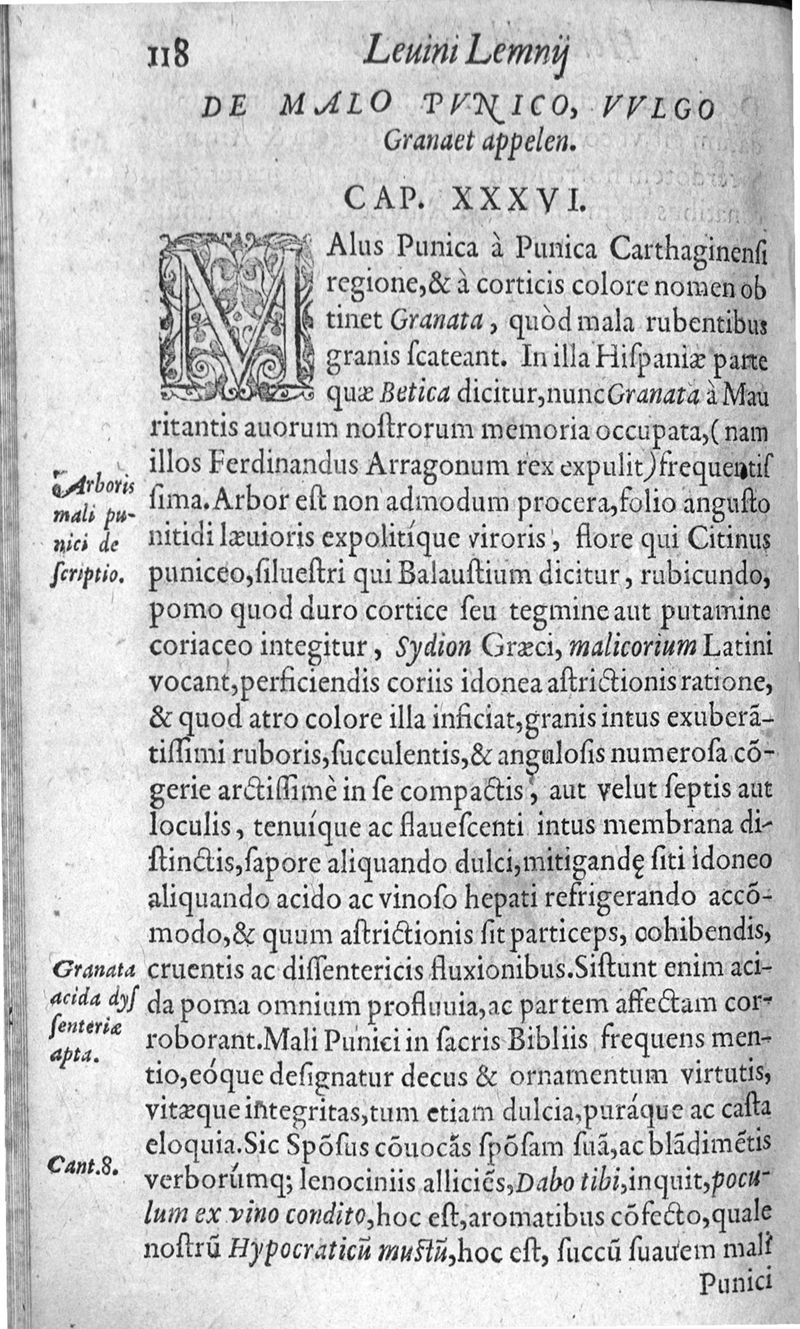 118 Leuini Lemnij
DE MALO PVNICO, VVLGO
Granaet appelen.
CAP. XXXVI.
MAlus Punica à Punica Carthaginenſi
regione,& à corticis colore nomen ob
tinet Granata, quòd mala rubentibus
granis ſcateant. In illa Hiſpaniæ parte
quæ Betica dicitur,nunc Granata à Mau
ritantis auorum noſtrorum memoria occupata,(nam
illos Ferdinandus Arragonum rex expulit)frequentiſ
ſima.Arbor eſt non admodum procera,folio anguſto
nitidi læuioris expolitíque viroris, flore qui Citinus
puniceo,ſilueſtri qui Balauſtium dicitur, rubicundo,
pomo quod duro cortice ſeu tegmine aut putamine
coriaceo integitur, Sydion Græci, malicorium Latini
vocant,perficiendis coriis idonea aſtrictionis ratione,
& quod atro colore illa inficiat,granis intus exuberã-
tiſſimi ruboris,ſucculentis,& anguloſis numeroſa cõ-
gerie arctiſſimè in ſe compactis, aut velut ſeptis aut
loculis, tenuíque ac flaueſcenti intus membrana di-
ſtinctis,ſapore aliquando dulci,mitigandę ſiti idoneo
aliquando acido ac vinoſo hepati refrigerando accõ-
modo,& quum aſtrictionis ſit particeps, cohibendis,
cruentis ac diſſentericis fluxionibus.Siſtunt enim aci-
da poma omnium profluuia,ac partem affectam cor-
roborant.Mali Punici in ſacris Bibliis frequens men-
tio,eóque deſignatur decus & ornamentum virtutis,
vitæque integritas,tum etiam dulcia,puráque ac caſta
eloquia.Sic Spõſus cõuocãs ſpõſam ſuã,ac blãdimẽtis
verborúmq; lenociniis alliciẽs,Dabo tibi,inquit,pocu-
lum ex vino condito,hoc eſt,aromatibus cõfecto,quale
noſtrũ Hypocraticũ muſtũ,hoc eſt, ſuccũ ſuauem mali
Punici
Arboris
mali pu-
nici de
ſcriptio.
Granata
acida dyſ
ſenteriæ
apta.
Cant.8.